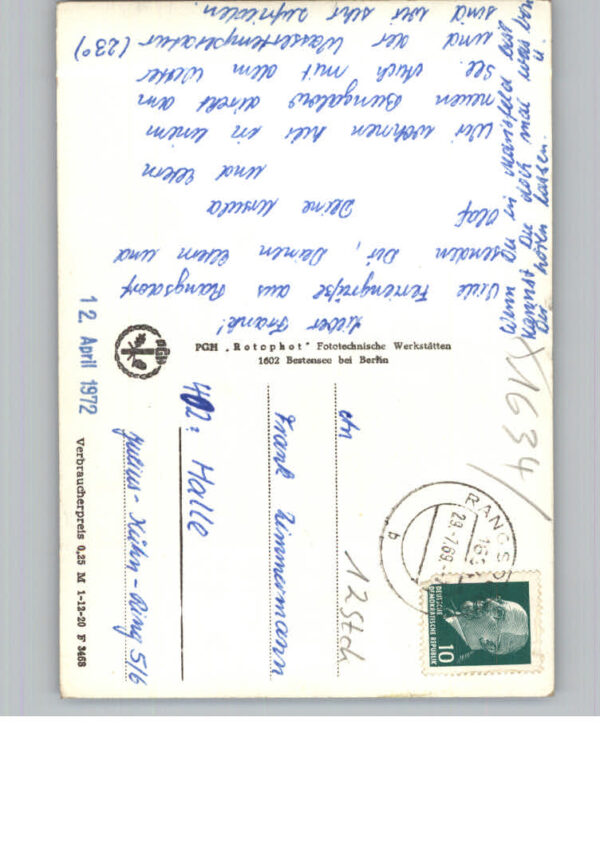 Lieber Frank!
Viele Feriengrüße aus Rangsdorf
senden Dir, Deinen Eltern und
Olaf
Deine Ursula
und Eltern
Wir wohnen hier in einem
neuen Bungalow direkt am
See. Auch mit dem Wetter
und der Wassertemperatur (23°)
sind wir sehr zufrieden.
Wenn Du in Mansfeld bist
kannst Du doch mal was von
Dir hören lassen. U.
PGH
PGH „Rotophot" Fototechnische Werkstätten
1602 Bestensee bei Berlin
12. April 1972
Verbraucherpreis 0,25 M 1-12-20 F 3468
X1634/
RANGSD
163
29.7.69
a
DEUTSCHE
DEMOKRATISCHE REPUBLIK
10
12 Stck
An
Frank Zimmermann
402 Halle
Julius-Kühn-Ring 5/6